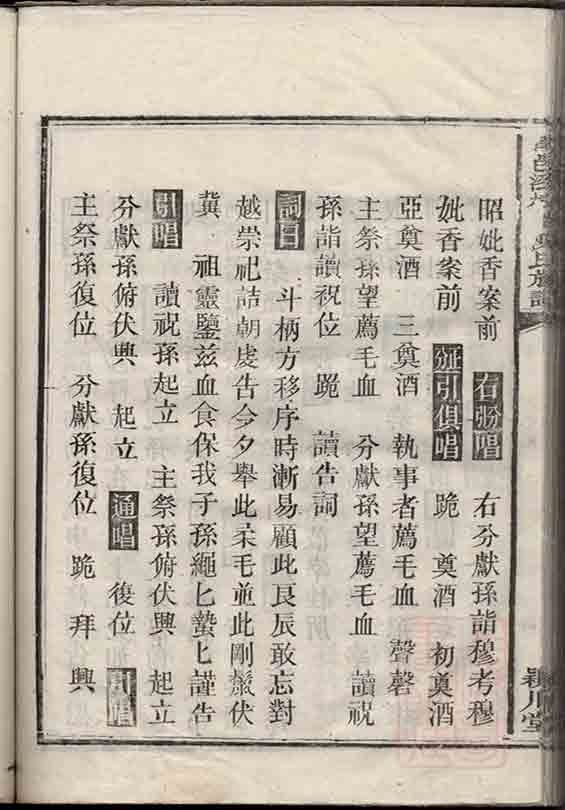 昭妣香案前 右分唱 右分獻孫詣穆考穆
妣香案前 引俱唱 跪 奠酒 初奠酒
亞奠酒 三奠酒 執事者薦毛血 聲磬
主祭孫望薦毛血 分獻孫望薦毛血 讀祝
孫詣讀祝位 跪 讀告詞
詞曰 斗柄方移序時漸易顧此良辰敢忘對
越崇祀詰朝虔告今夕舉此柔毛並此剛鬣伏
冀 祖靈鑒茲血食保我子孫繩匕蟄匕謹告
引唱 讀祝孫起立 主祭孫俯伏興 起立
分獻孫俯伏興 起立 通唱 復位 引唱
主祭孫復位 分獻孫復位 跪 拜 興
氏族譜
潁川堂